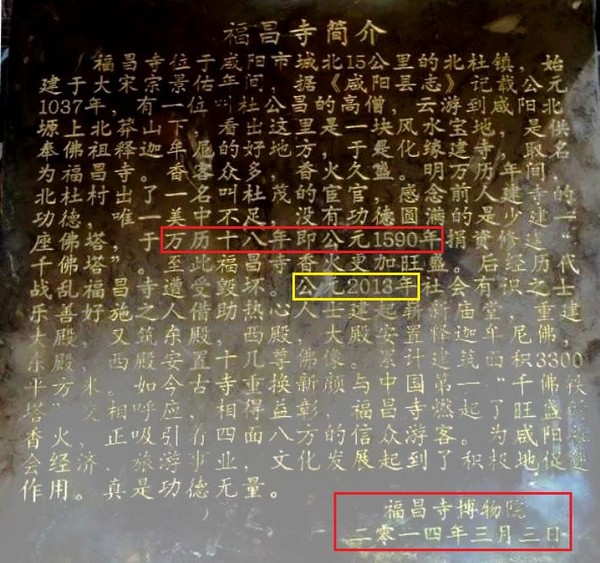 福昌寺简介
福昌寺位于咸阳市城北15公里的北杜镇，始
建于大宋宗景佑年间，据《咸阳县志》记载公元
1037年，有一位叫杜公昌的高僧，云游到咸阳北
塬上北莽山下，看出这里是一块风水宝地，是供
奉佛祖释迦牟尼的好地方，于是化缘建寺，取名
为福昌寺。香客众多，香火久盛。明万历年间，
北杜村出了一名叫杜茂的宦官，感念前人建寺的
功德，唯美中不足的没有功德圆满的是少建一
座佛塔，于万历十八年即公元1590年捐资修建“
千佛塔”。至此福昌寺香火更加旺盛。后经历代
战乱福昌寺遭受毁坏。公元2013年社会有识之士
乐善好施之人借助热心人士建起新庙堂，重建
大殿，又筑东殿
东西
平方米。如今古寺换新颜，与中国第一“千佛铁
塔”交相呼应，相得益彰，福昌寺燃起了旺盛
香火，正吸引着四面八方的信众游客。为咸阳
会经济、旅游事业、文化发展起到了积极地促进
作用。真是功德无量。
福昌寺博物院
二零一四年三月三日